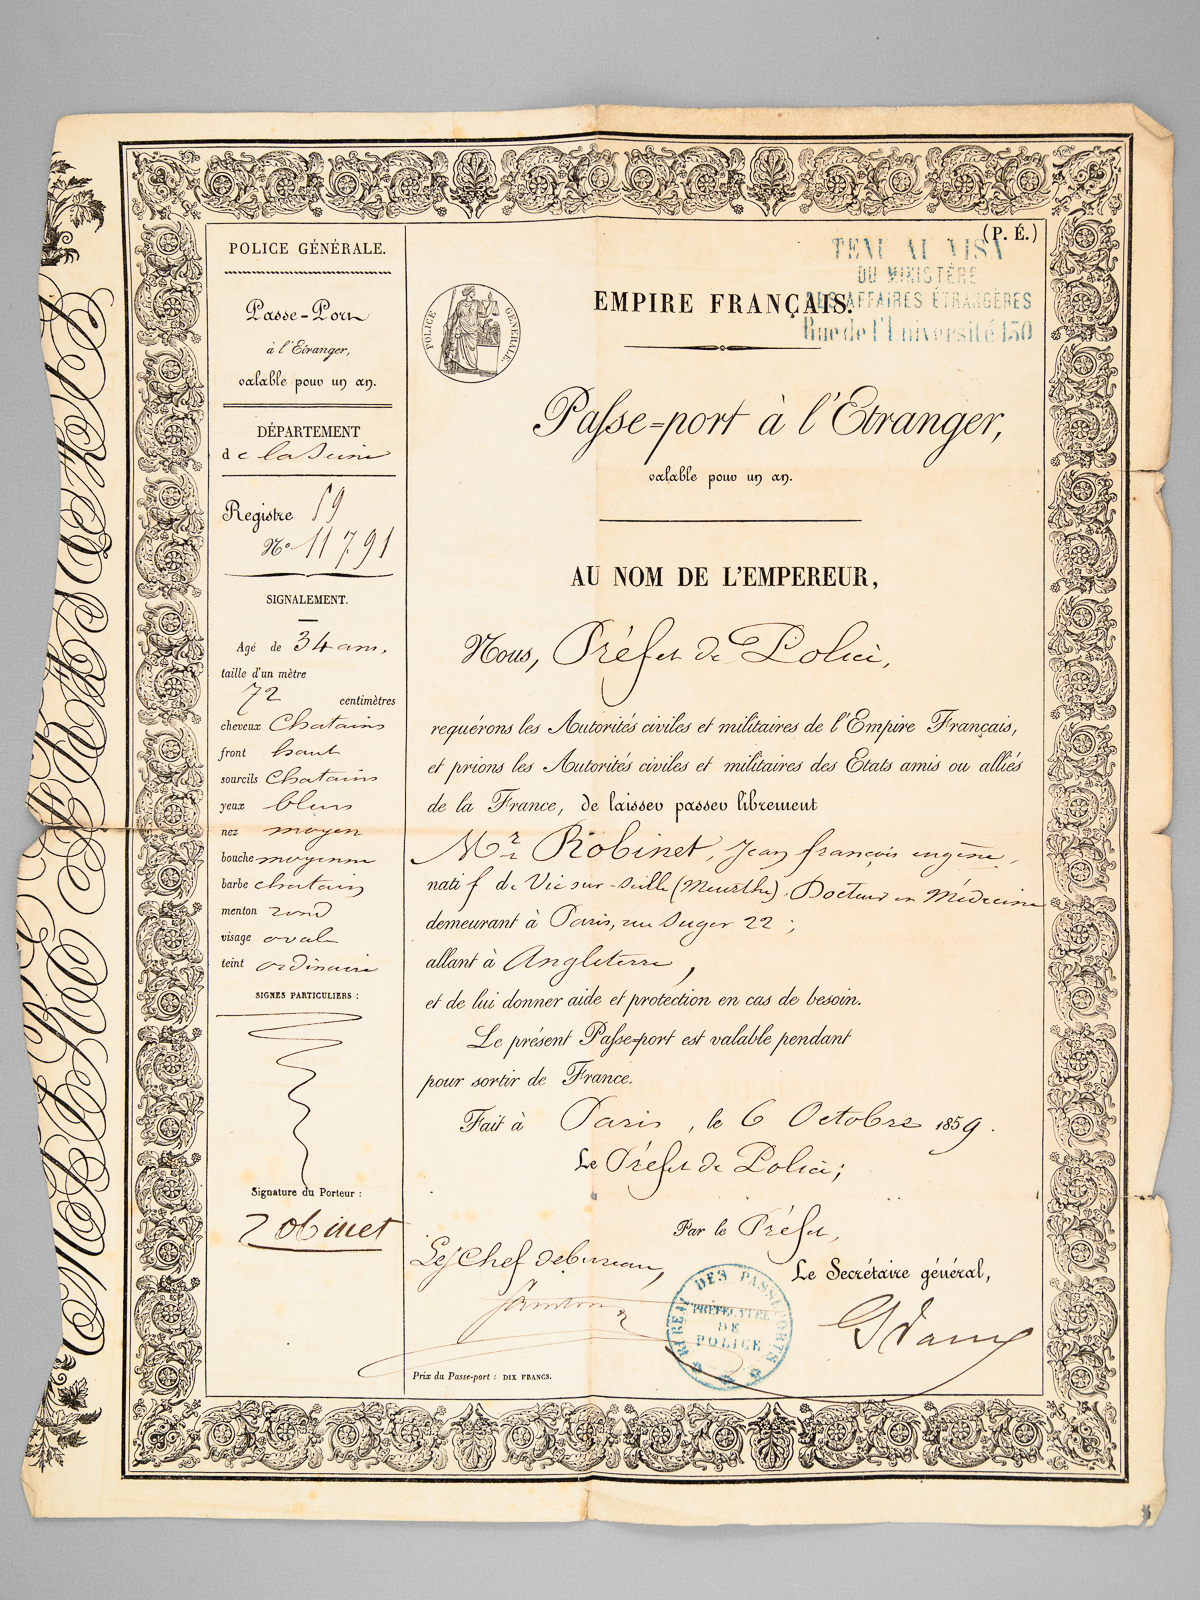 POLICE GÉNÉRALE.
Passe-Port
à l'Etranger,
valable pour un an.
DÉPARTEMENT
de la Seine
Registre 59
N° 11791
SIGNALEMENT.
Agé de 34 ans,
taille d'un mètre
72 centimètres
cheveux Chatains
front haut
sourcils chatains
yeux bleus
nez moyen
bouche moyenne
barbe chatain
menton rond
visage ovale
teint ordinaire
SIGNES PARTICULIERS :
Signature du Porteur :
robinet
(P. É.)
TENU AU VISA
DU MINISTÈRE
DES AFFAIRES ÉTRANGÈRES
Rue de l'Université 130
POLICE GÉNÉRALE.
EMPIRE FRANÇAIS.
Passe-port à l'Etranger,
valable pour un an.
AU NOM DE L'EMPEREUR,
Nous, Préfet de Police,
requérons les Autorités civiles et militaires de l'Empire Français,
et prions les Autorités civiles et militaires des Etats amis ou alliés
de la France, de laisser passer librement
Mr Robinet, Jean françois eugène,
natif de Vic sur Seille (Meurthe). Docteur en Médecine
demeurant à Paris, rue Suger 22 ;
allant à Angleterre,
et de lui donner aide et protection en cas de besoin.
Le présent Passe-port est valable pendant
pour sortir de France.
Fait à Paris, le 6 Octobre 1859.
Le Préfet de Police ;
Par le Préfet,
Le Chef de bureau,
Le Secrétaire général,
BUREAU DES PASSEPORTS
PRÉFECTURE
DE
POLICE
Prix du Passe-port : DIX FRANCS.